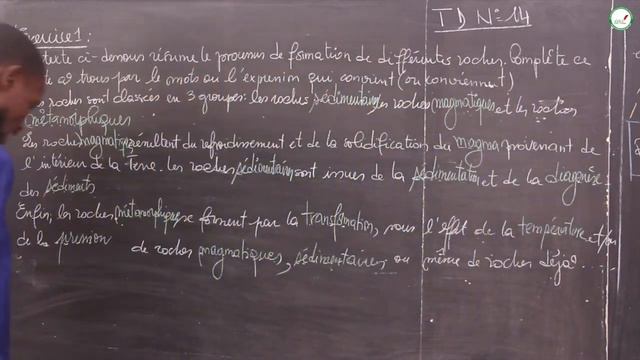 TD N° 14
Exercice 1 :
texte ci-dessous résume le processus de formation de différentes roches. Complète ce
texte à trous par le mots ou l'expression qui convient (ou conviennent)
roches sont classées en 3 groupes: les roches sédimentaires, les roches magmatiques et les
métamorphiques
Les roches magmatiques résultent du refroidissement et de la solidification du magma provenant de
l'intérieur de la Terre. Les roches sédimentaires sont issues de la sédimentation et de la diagenèse
des sédiments
Enfin, les roches métamorphiques se forment par la transformation, sous l'effet de la température et/ou
de la pression de roches magmatiques, sédimentaires ou même de roches déjà